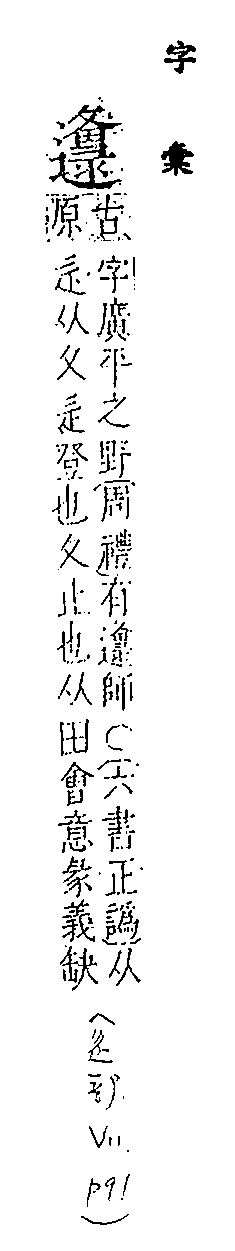 字彙
邍
古原
字廣平之野周禮有邍師○六書正譌从
辵从夂辵登也夂止也从田會意彖義缺
(辵部 VII. p91)